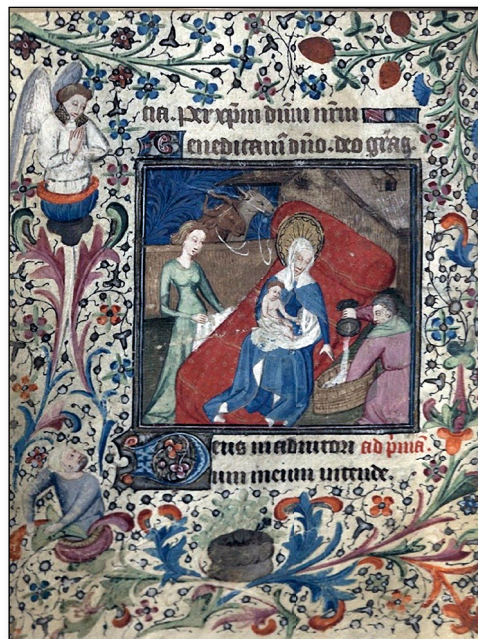 cia. Per xp̄m dn̄m nr̄m
Benedicam᷒ dn̄o. deo gr̄as.
Deus in adiutori ad p̄mā.
ium meum intende.